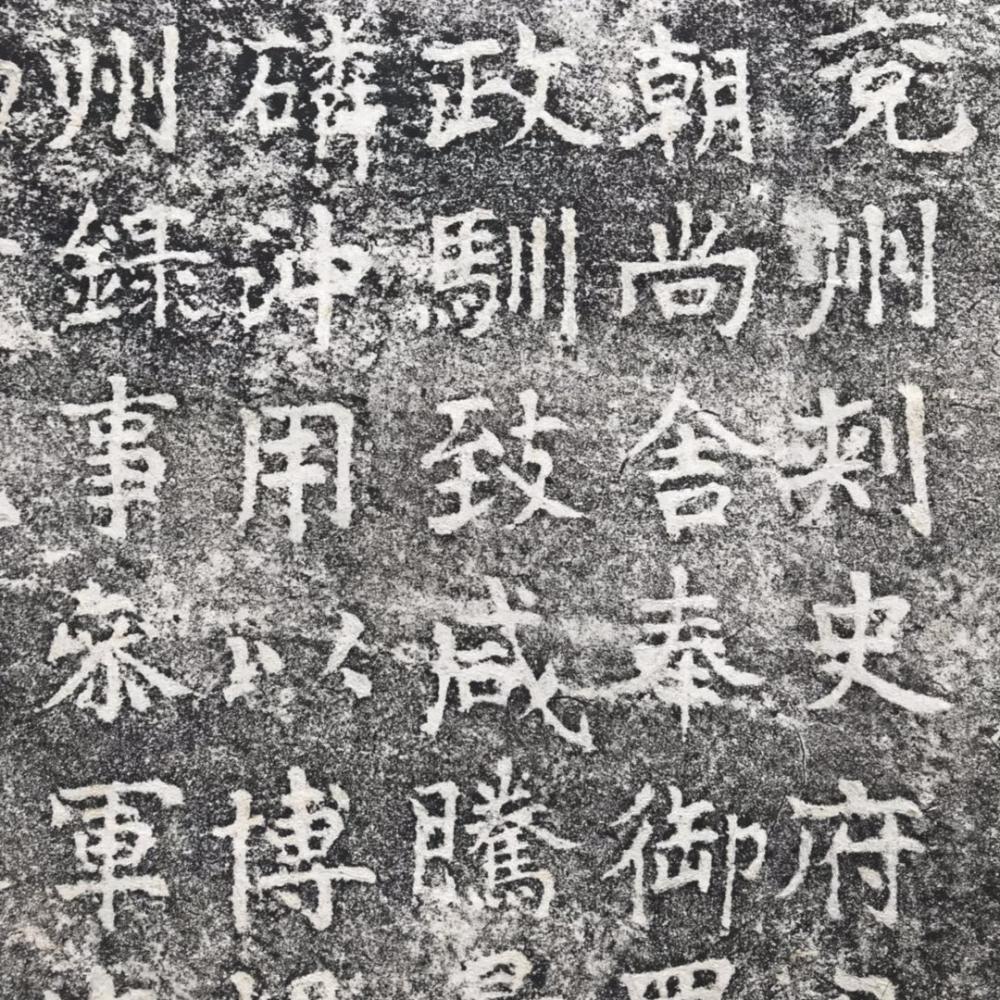 兗州刾史府
朝尚舍奉御
政馴致咸騰
磷冲用以博
州錄事叅軍